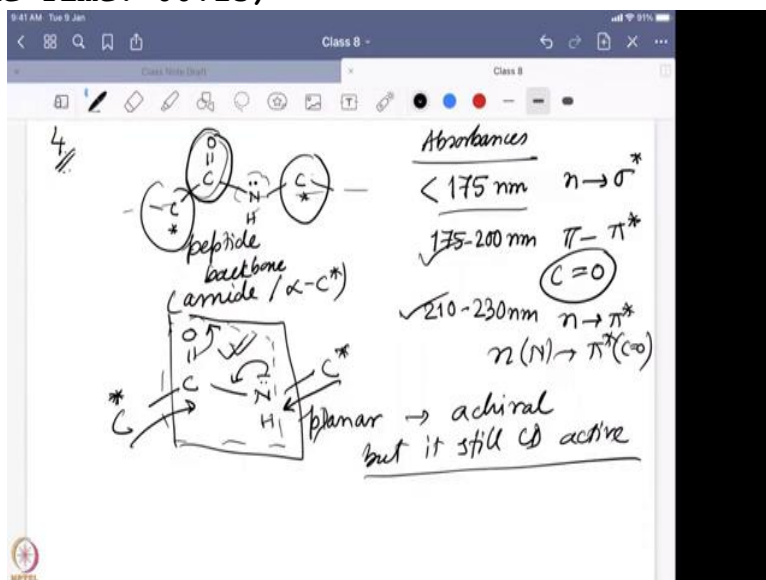 9:41 AM Tue 9 Jan
91%
Class 8
Class Note Draft
Class 8
4
O
C
C
*
N
H
C
*
peptide
backbone
(amide / α-C*)
Absorbances
< 175 nm n→σ*
175-200 nm π-π*
C=O
210-230 nm n→π*
n(N)→π*(C=O)
O
C
N
H
C*
*
C
planar → achiral
but it still CD active
NPTEL